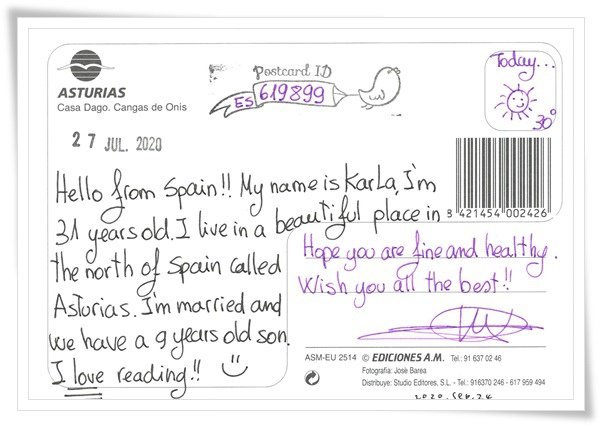 ASTURIAS
Casa Dago. Cangas de Onis
27 JUL. 2020
Postcard ID
ES 619899
Today...
30°
8 421454 002426
Hello from Spain!! My name is Karla, I'm
31 years old. I live in a beautiful place in
the north of Spain called
Asturias. I'm married and
we have a 9 years old son.
I love reading!!
Hope you are fine and healthy.
Wish you all the best!!
ASM-EU 2514 © EDICIONES A.M. Tel.: 91 637 02 46
Fotografía: José Barea
Distribuye: Studio Editores, S.L. - Tel.: 916370 246 - 617 959 494
2020. Sep. 24